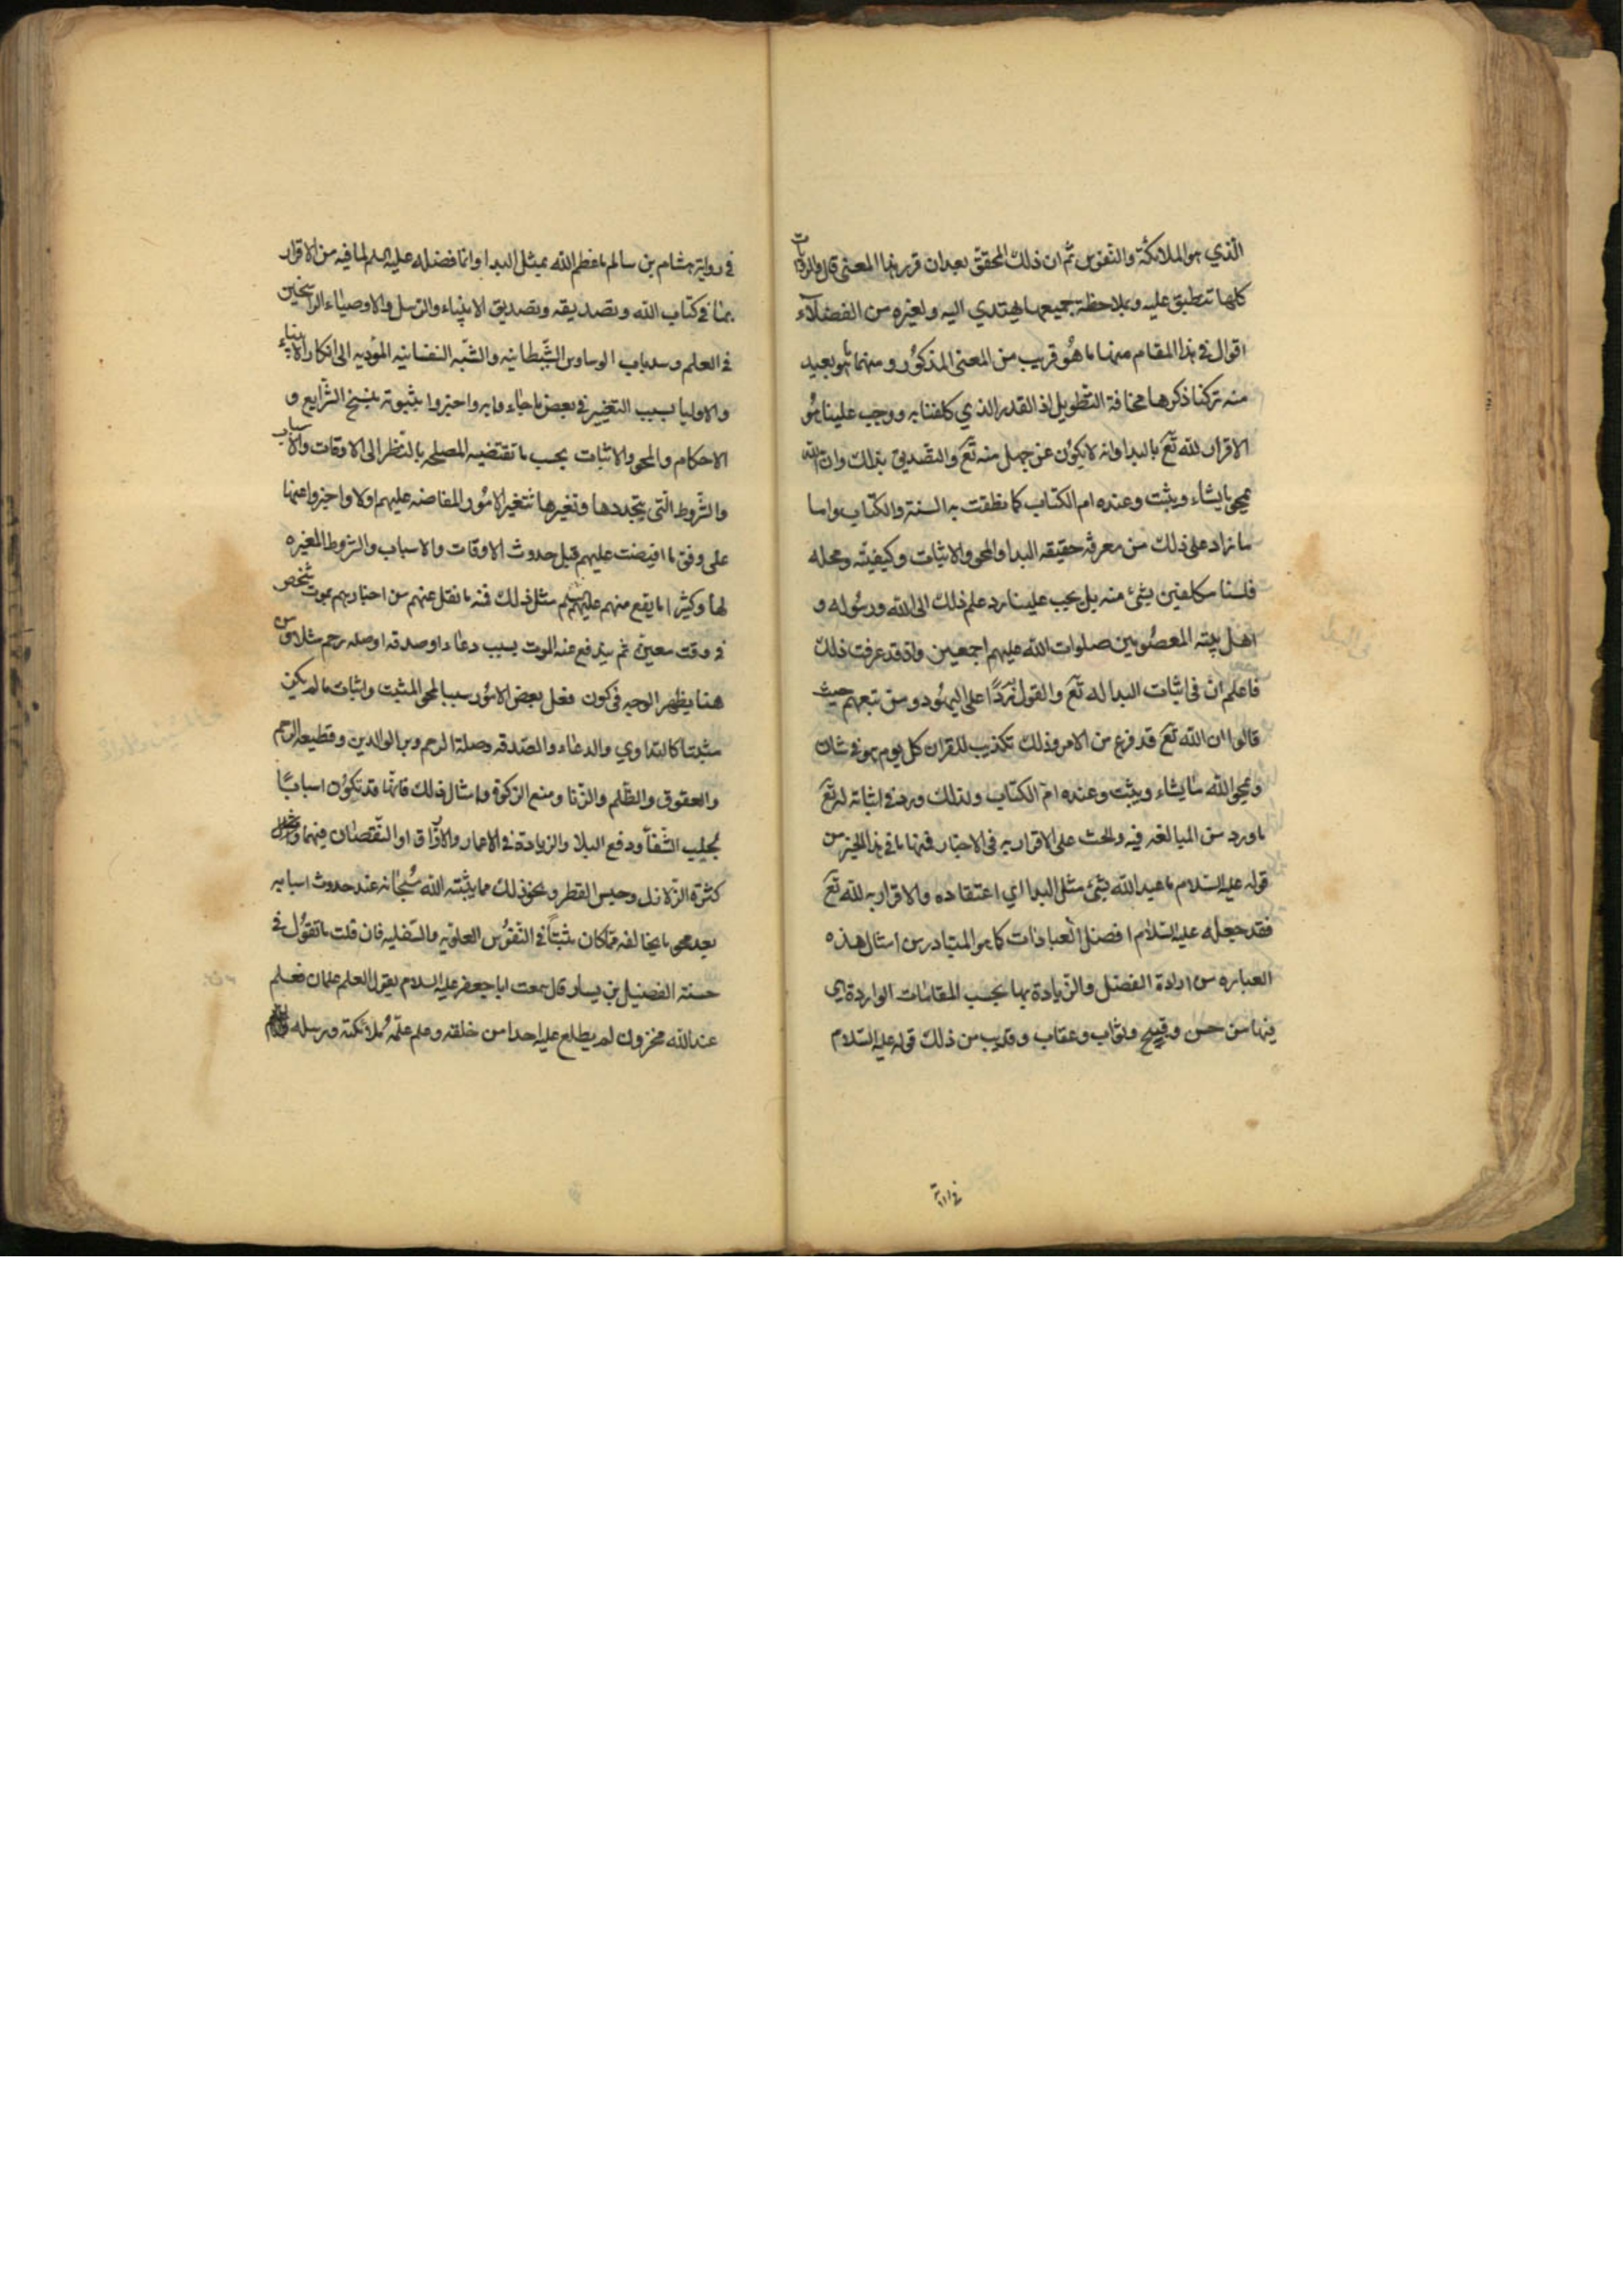 الّذي هو الملائكة والنفوس ثم ان ذلك المحقق بعد ان قرر هذا المعنى قال والروايات
كلها تنطبق عليه وبملاحظة جميعها يهتدي اليه ولغيره من الفضلاء
اقوال في هذا المقام منها ما هو قريب من المعنى المذكور ومنها ما هو بعيد
منه تركنا ذكرها مخافة التطويل اذ القدر الذي كلفنا به ووجب علينا هو
الاقرار لله تع بالبدا وانه لا يكون عن جهل منه تع والتصديق بذلك وان الله
يمحو ما يشاء ويثبت وعنده ام الكتاب كما نطقت به السنة والكتاب واما
ما زاد على ذلك من معرفة حقيقه البدا والمحو والاثبات وكيفيته ومحله
فلسنا مكلفين بشئ منه بل يجب علينا رد علم ذلك الى الله ورسوله و
اهل بيته المعصومين صلوات الله عليهم اجمعين واذ قد عرفت ذلك
فاعلم ان في اثبات البدا له تع والقول به ردّا على اليهود ومن تبعهم حيث
قالوا ان الله تع قد فرغ من الامر وذلك تكذيب للقران كل يوم هو في شان
ويمحو الله ما يشاء ويثبت وعنده ام الكتاب ولذلك ورد في اثباته له تع
ما ورد من المبالغه فيه والحث على الاقرار به في الاخبار فمنها ما في هذا الخبر من
قوله عليه السّلام ما عبد الله بشئ مثل البدا اي اعتقاده والاقرار به لله تع
فقد جعله عليه السّلام افضل العبادات كما هو المتبادر من امثال هذه
العباره من ارادة الفضل والزيادة بها بحسب المقامات الواردة هي
فيها من حسن وقبيح وثواب وعقاب وقريب من ذلك قوله عليه السّلام
في رواية
في رواية هشام بن سالم ما عظم الله بمثل البدا وانما فضله عليه السلم لما فيه من الاقرار
بما في كتاب الله وتصديقه وتصديق الانبياء والرسل والاوصياء الراسخين
في العلم وسد باب الوساوس الشّيطانيه والشّبه النفسانيه المؤديه الى انكار الانبياء
والاوليا بسبب التغيير في بعض ما جاء وا به واخبروا بثبوته بنسخ الشّرايع و
الاحكام والمحو والاثبات بحسب ما تقتضيه المصلحه بالنّظر الى الاوقات والاسباب
والشّروط الّتي بتجددها وتغيرها تتغير الامور المفاضه عليهم اولا واخبروا عنها
على وفق ما افيضت عليهم قبل حدوث الاوقات والاسباب والشروط المغيره
لها وكثيرا ما يقع منهم عليهم السلم مثل ذلك فمنه ما نقل عنهم من اخبارهم بموت شخص
في وقت معين ثم يندفع عنه الموت بسبب دعاء او صدقه او صله رحم مثلا ومن
هنا يظهر الوجه في كون فعل بعض الامور سببا لمحو المثبت واثبات ما لم يكن
مثبتا كالتداوي والدعاء والصّدقه وصلة الرحم وبر الوالدين وقطيعه الرحم
والعقوق والظّلم والزّنا ومنع الزكوة وامثال ذلك فانّها قد تكون اسبابًا
لجلب الشّفآ ودفع البلا والزيادة في الاعمار والارزاق او النّقصان فيهما ومثل
كثرة الزّلازل وحبس القطر ونحو ذلك مما يثبته الله سُبحانه عند حدوث اسبابه
بعد محو ما يخالفه ممّا كان مثبتًا في النّفوس العلويه والسّفليه فان قلت ما تقول في
حسنه الفضيل بن يسار قال سمعت ابا جعفر عليه السلام يقول العلم علمان فعلم
عند الله مخزون لم يطلع عليه احدا من خلقه وعلم علّمه ملائكته ورسله